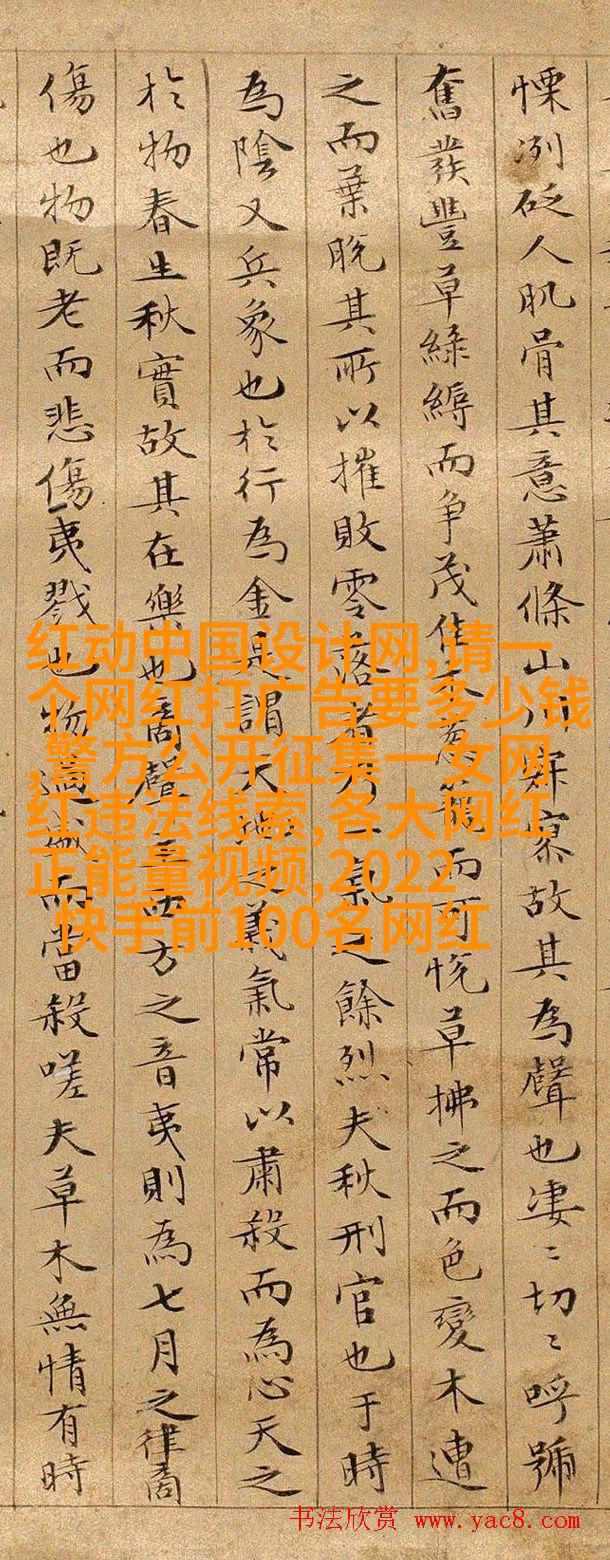 慄冽砭人肌骨其意蕭條山川寂寥故其為聲也凄〻切〻呼號
奮發豐草綠縟而爭茂佳木葱蘢而可悅草拂之而色變木遭
之而葉脫其所以摧敗零落者乃一氣之餘烈夫秋刑官也于時
為陰又兵象也於行為金是謂天地之義氣常以肅殺而為心天之
於物春生秋實故其在樂也商聲主西方之音夷則為七月之律商
傷也物既老而悲傷夷戮也物過盛而當殺嗟夫草木無情有時
红动中国设计网,请一
个网红打广告要多少钱
,警方公开征集一女网
红违法线索,各大网红
正能量视频,2022
快手前100名网红
书法欣赏 www.yac8.com